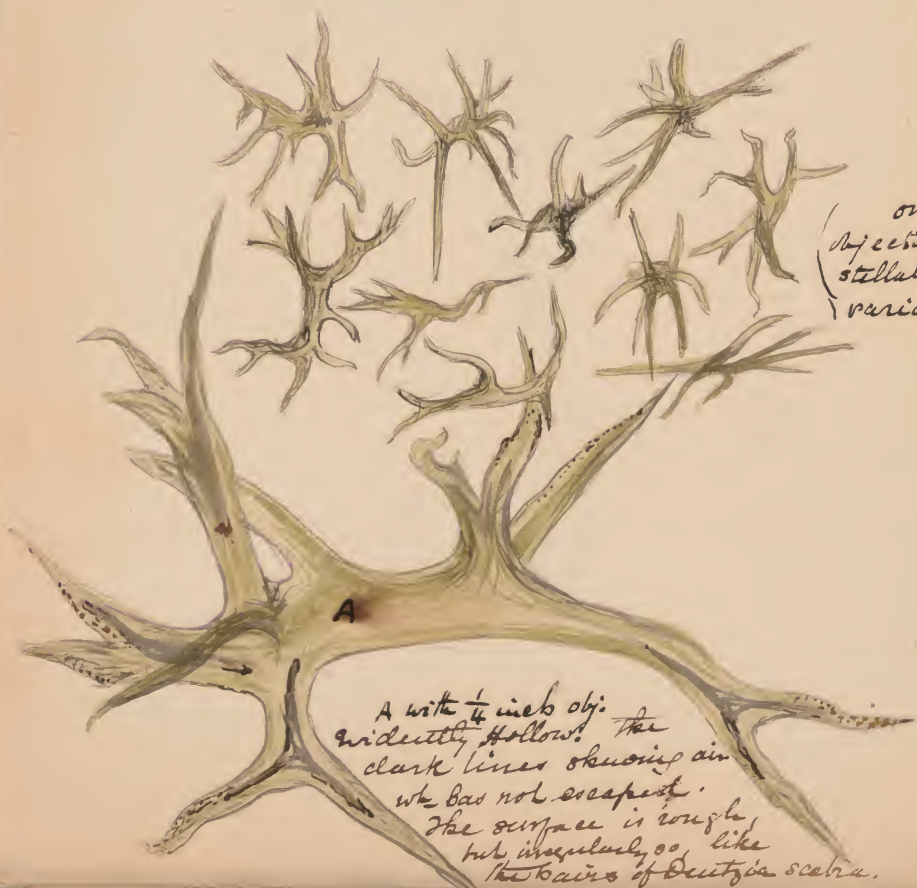 objecti
stella
varia
A
A with 1/4 inch obj.
Evidently Hollow. The
dark lines shewing air
wh has not escaped.
The surface is rough,
but irregularly so, like
the hairs of Deutzia scabra.